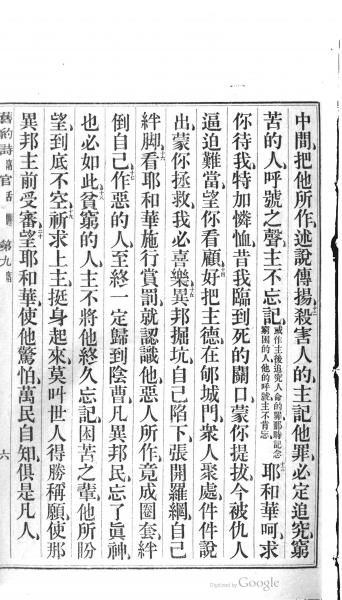 中間、把他所作、述說傳揚、十二殺害人的、主記他罪、必定追究、窮
苦的人、呼號之聲、主不忘記、
或作主後追究人命的罪那時記念
窮困的人他的呼號主不肯忘
十三耶和華呵、求
你待我、特加憐恤、昔我臨到死的關口、蒙你提拔、今被仇人
逼迫難當、望你看顧、十四好把主德、在郇城門、衆人聚處、件件說
出、蒙你拯救、我必喜樂、十五異邦掘坑、自己陷下、張開羅網、自己
絆脚、十六看耶和華施行賞罰、就認識他、惡人所作、竟成圈套、絆
倒自己、十七作惡的人、至終一定歸到陰曹、凡異邦民、忘了眞神、
也必如此、十八貧窮的人、主不將他終久忘記、困苦之輩、他所盼
望、到底不空、十九祈求上主、挺身起來、莫叫世人得勝稱願、使那
異邦、主前受審、二十望耶和華、使他驚怕、萬民自知、俱是凡人、
舊約詩篇 官話 第九篇 六
Digitized by Google